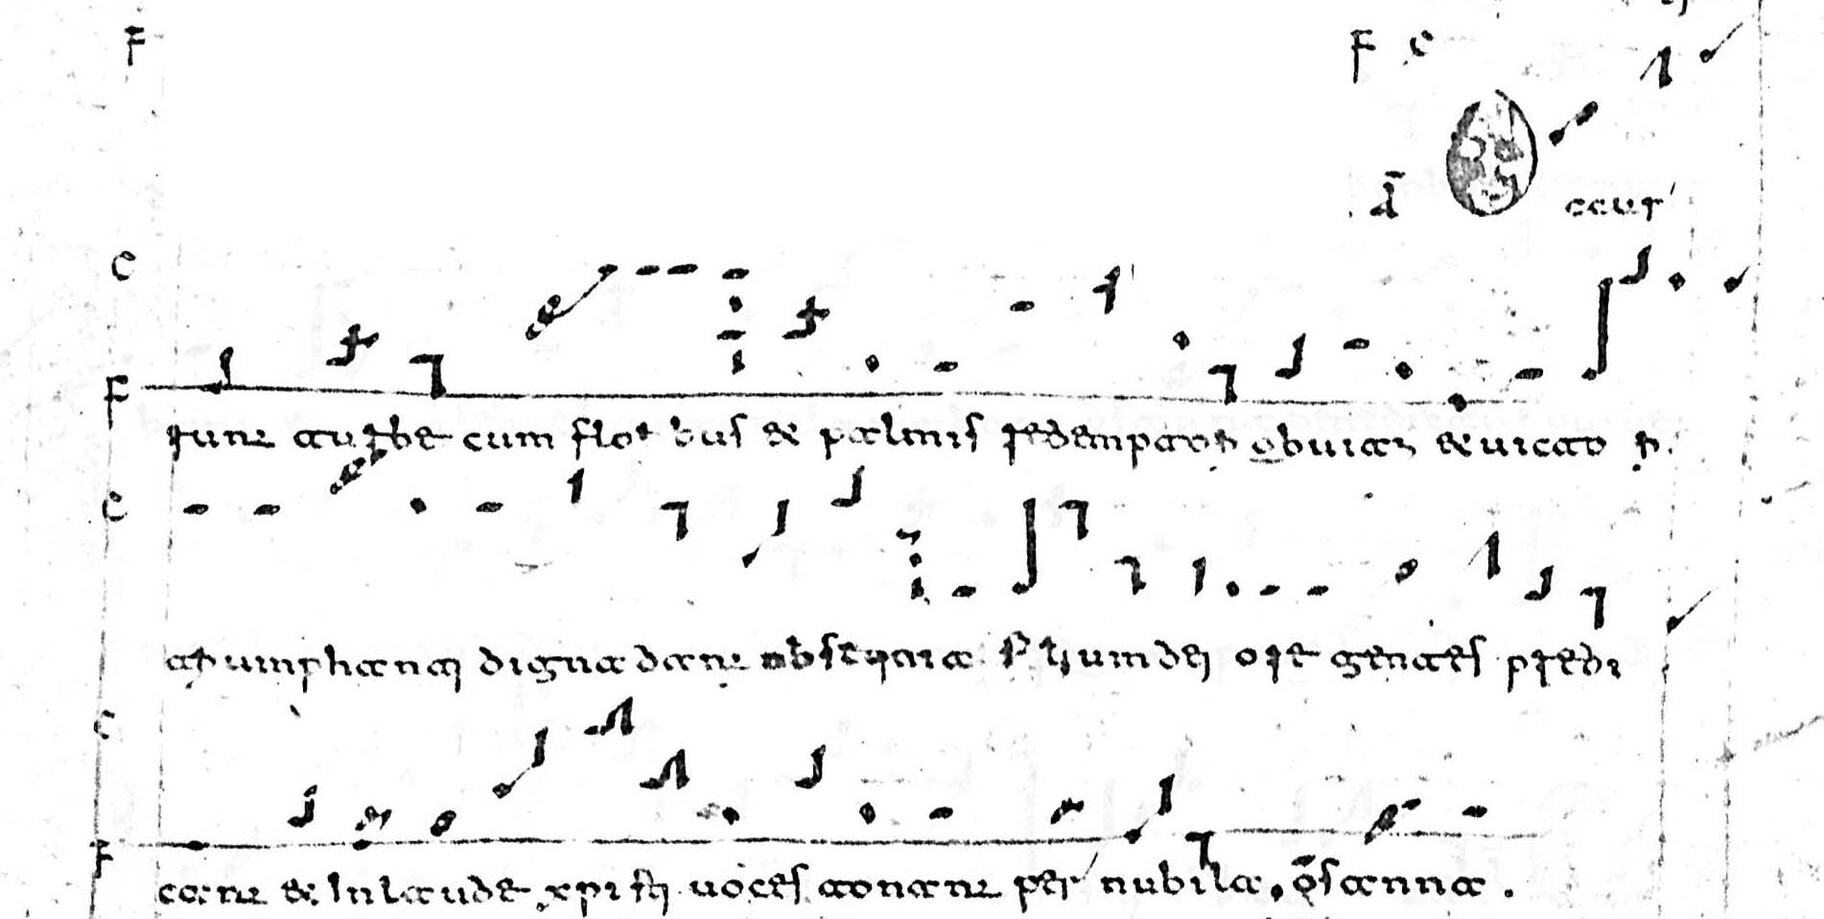 F F C
A Occur
C
F
runt turbe cum flori bus & palmis redemptori obuiam & uicto ri
C
triumphanti digna dant obsequia filium dei ore gentes predi
C
F
cant & In laude xpisti uoces tonant per nubila. osanna.